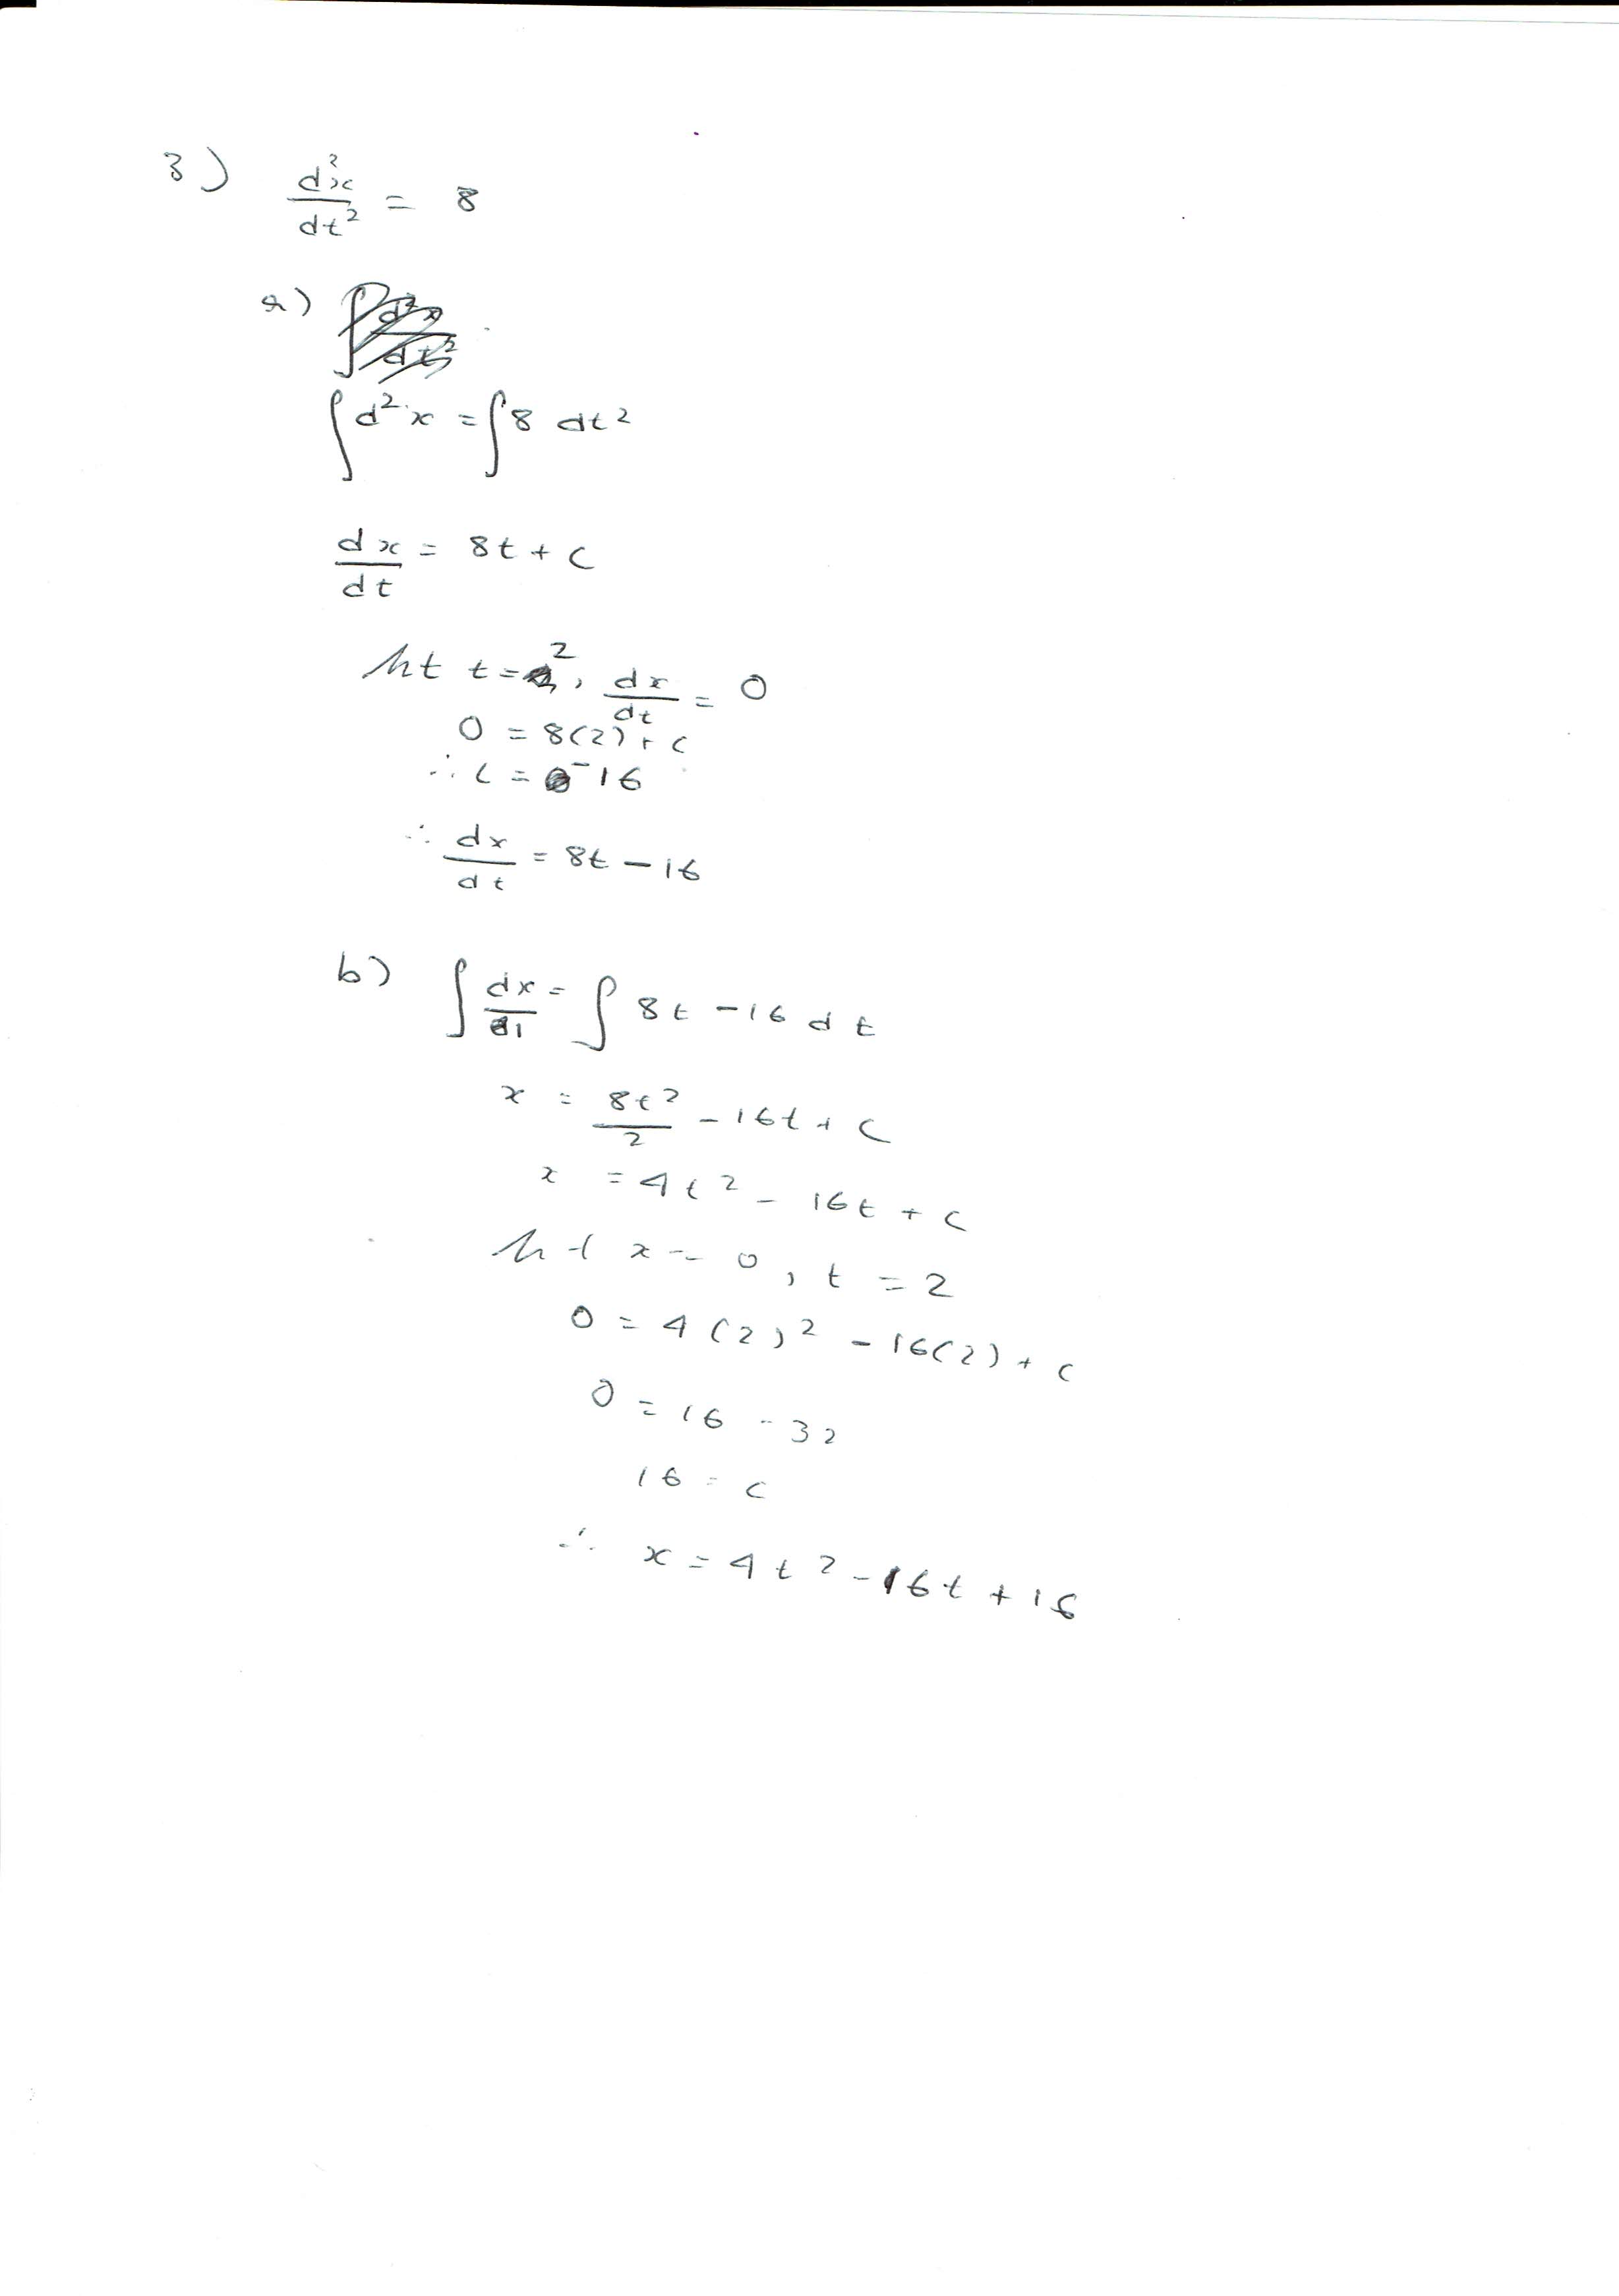 3) d²x/dt² = 8
a)
∫ d²x = ∫ 8 dt²
dx/dt = 8t + c
At t = 2, dx/dt = 0
0 = 8(2) + c
∴ c = -16
∴ dx/dt = 8t - 16
b) ∫ dx/dt = ∫ 8t - 16 dt
x = 8t²/2 - 16t + c
x = 4t² - 16t + c
At x = 0, t = 2
0 = 4(2)² - 16(2) + c
0 = 16 - 32
16 = c
∴ x = 4t² - 16t + 16